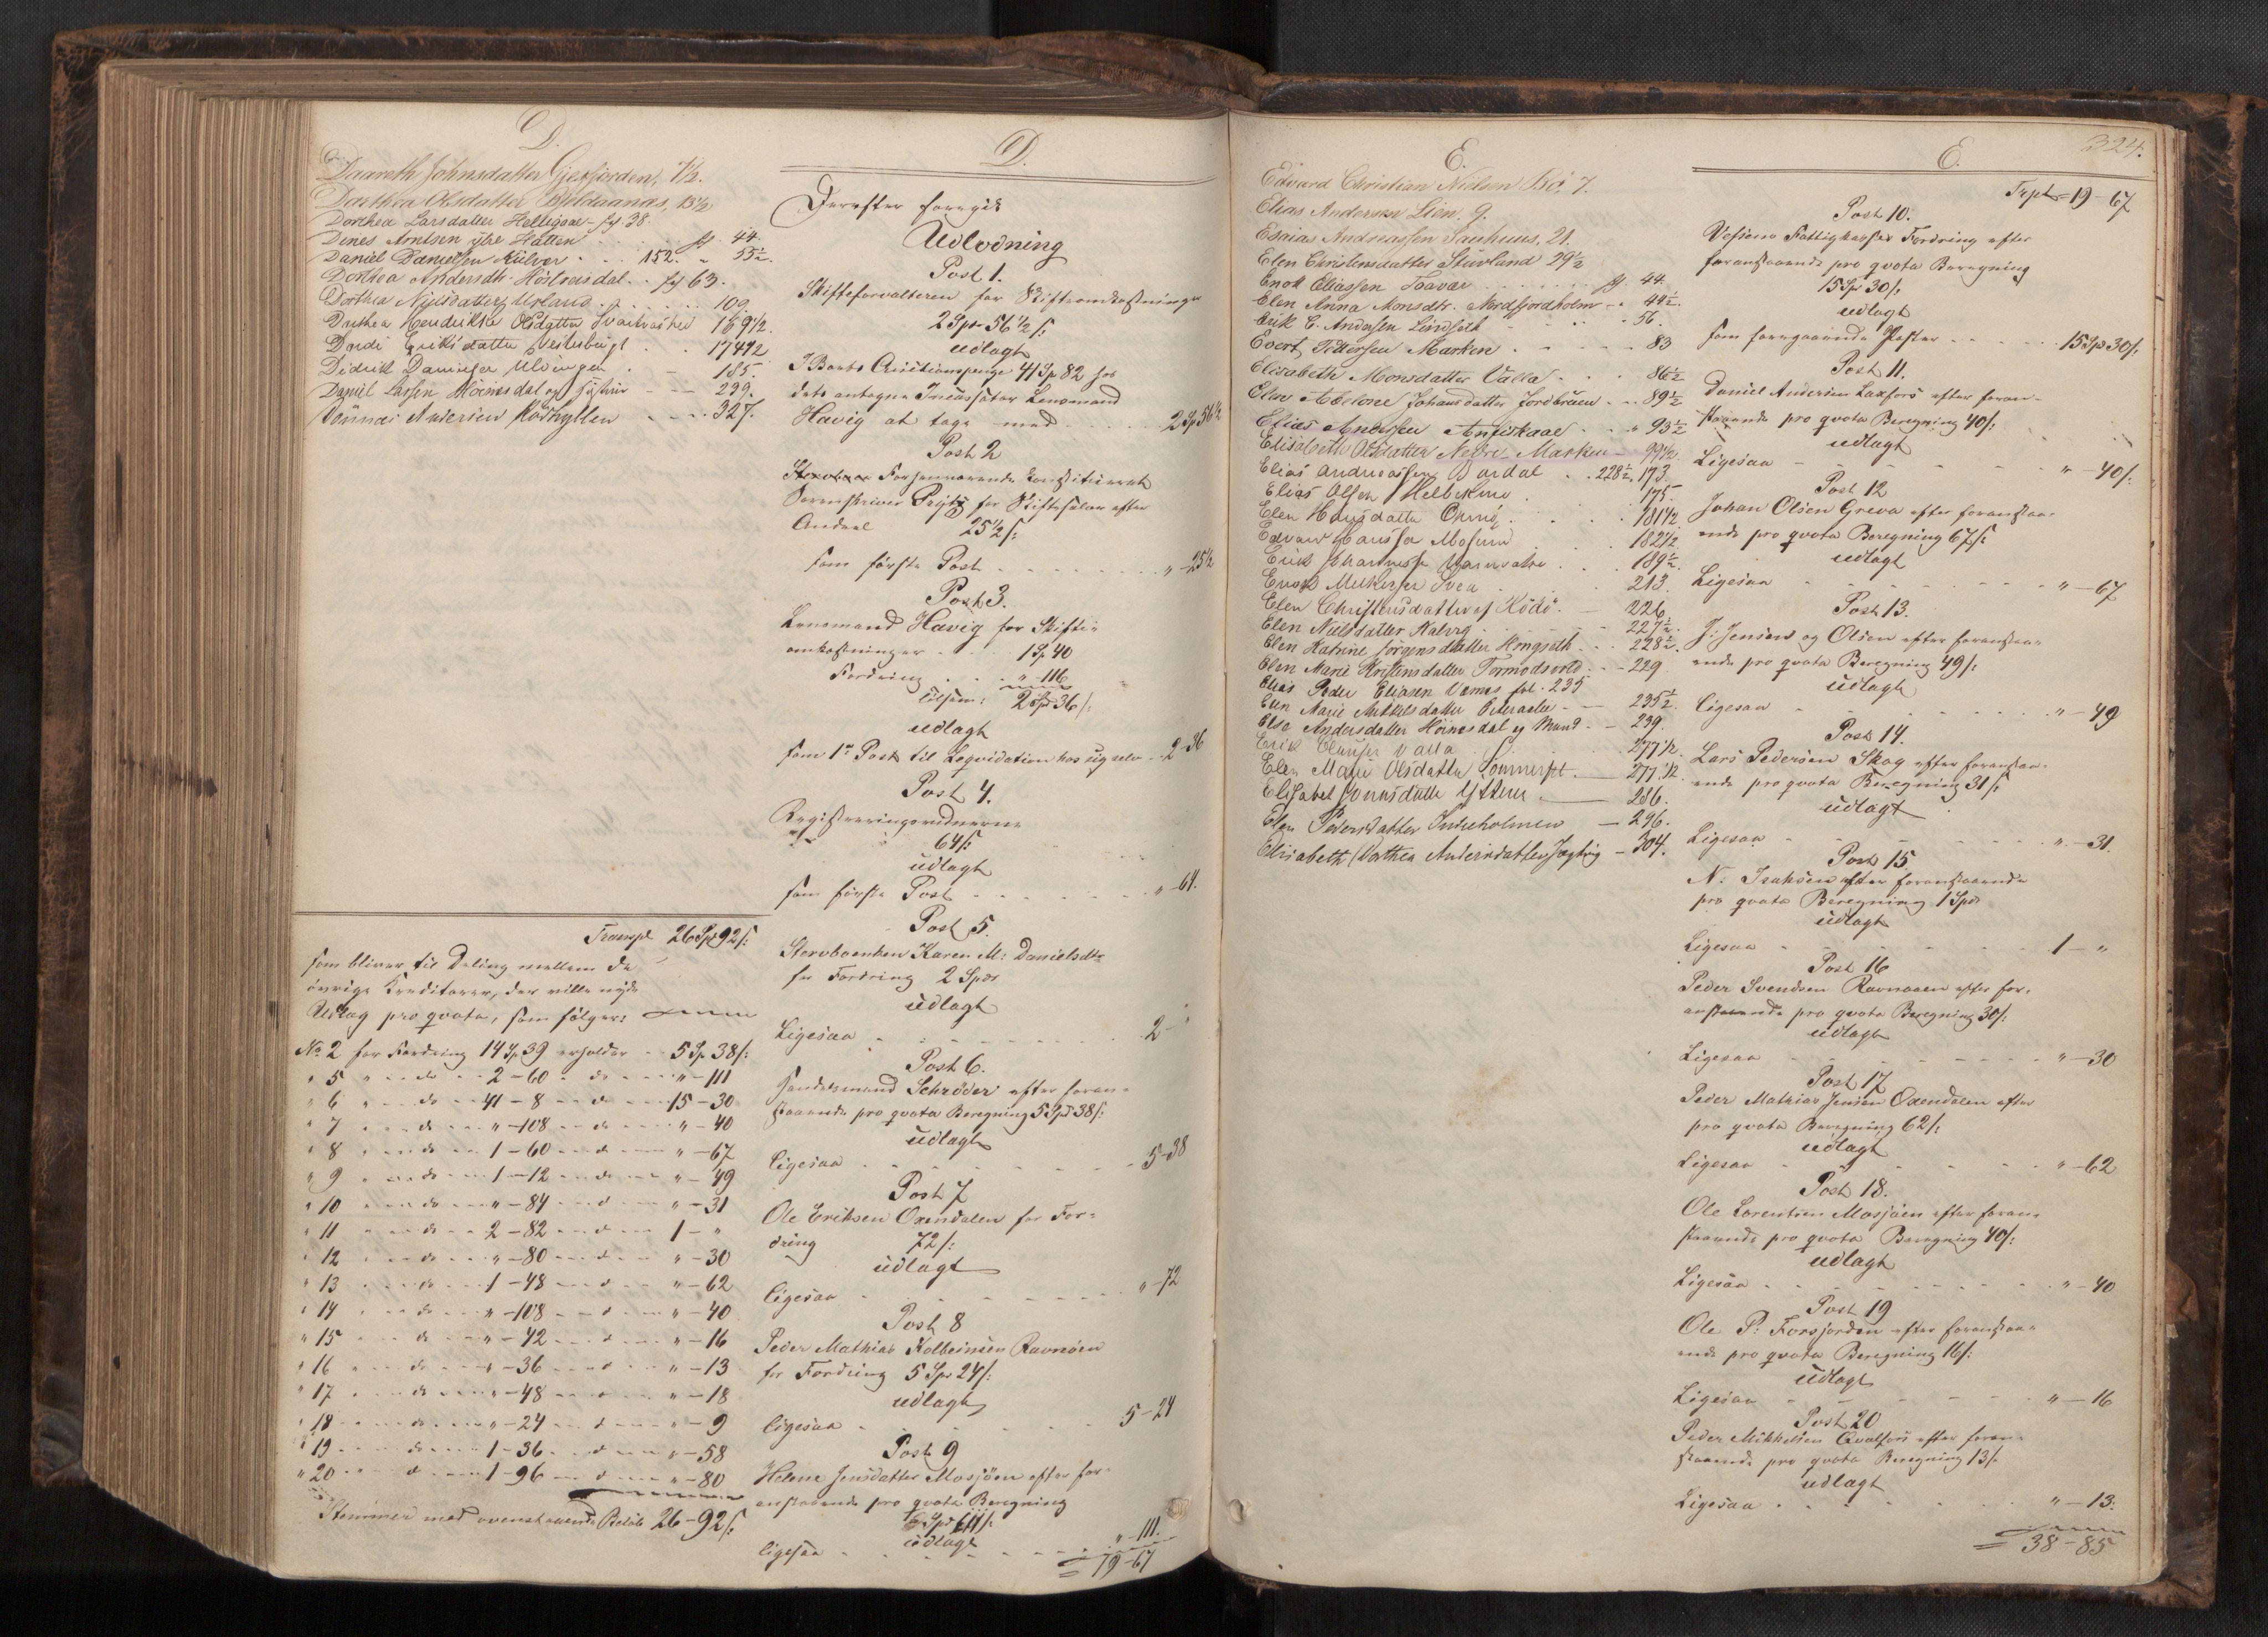 D.
Daareth Johnsdatter Gjesfjorden, 7½.
Dorthea Olsdatter Bjeldaanæs, 13½
Dorthea Larsdatter Helligaae - fol 38.
Denes Arntsen ytre Hatten fol. 44.
Daniel Danielsen Kulver . . 152. " 55½.
Dorthea Andersdtr. Høstveisdal . . fol 63.
Dorthea Nielsdatter, Urland . . . 109.
Dorthea Hendrikke Olsdatter Svartvashei 169½.
Dordi Eriksdatter Vestersbugt . . 174½
Didrik Danielsen Ulvingen . - 185.
Daniel Larsen Hoinesdal og Hustru - - 299.
Dønnæs Andersen Rødhyllen - - - 327.
Transpt 26 Spd 92 s:
som bliver til Deling mellem de
øvrige Kreditorer, der ville nyde
Udlæg pro qvota, som følger:
No 2 for Fordring 14 Sp 39 erholder - 5 Sp 38 s:
" 5 " - do - 2 - 60 - do - " - 111
" 6 " - do - 41 - 8 - do - 15 - 30
" 7 " - do - " - 108 - do - " - 40
" 8 " - do - 1 - 60 - do - " - 67
" 9 " - do - 1 - 12 - do - " - 49
" 10 " - do - " - 84 - do - " - 31
" 11 " - do - 2 - 82 - do - 1 - "
" 12 " - do - " - 80 - do - " - 30
" 13 " - do - 1 - 48 - do - " - 62
" 14 " - do - " - 108 - do - " - 40
" 15 " - do - " - 42 - do - " - 16
" 16 " - do - " - 36 - do - " - 13
" 17 " - do - " - 48 - do - " - 18
" 18 " - do - " - 24 - do - " - 9
" 19 " - do - 1 - 36 - do - " - 58
" 20 " - do - 1 - 96 - do - " - 80
Stemmer med ovenstaaende Beløb 26 - 92 s:
D.
Derefter foregik
Udlodning
Post 1.
Skifteforvalteren for Skifteomkostninger
2 Spd 56½ s:
udlagt
I Boets Auctionspenge 41 Sp 82 hos
dets antagne Incassator Lensmand
Havig at tage med . . . . 2 Sp 56½
Post 2
Forhenværende konstitueret
Sorenskriver Prytz for Skiftesalær efter
Andeel 25½ s:
som første Post . . . . " - 25½
Post 3.
Lensmand Havig for Skifte-
omkostninger . . . 1 Sp 40
Fordring . . . " - 116
tilsam: 2 Spd 36 s:
udlagt
som 1ste Post til Leqvidation hos sig selv - 2 - 36
Post 4.
Registreringsvidnerne
64 s:
udlagt
som første Post . . . . " - 64.
Post 5.
Stervboenken Karen M: Danielsdtr
for Fordring 2 Spdr
udlagt
Ligesaa . . . . 2 - "
Post 6.
Handelsmand Schrøder efter foran-
staaende pro qvota Beregning 5 Spd 38 s:
udlagt
ligesaa . . . . 5 - 38
Post 7
Ole Eriksen Oxendalen for For-
dring 72 s:
udlagt
ligesaa . . . . " - 72
Post 8
Peder Mathias Kolbeinsen Ravnaaen
for Fordring 5 Spd 24 s:
udlagt
ligesaa . . . . 5 - 24
Post 9
Helene Jensdatter Mosjøen efter for-
anstaaende pro qvota Beregning
111 s:
udlagt
ligesaa . . . . " - 111.
= 19 - 67
E.
Edvard Christian Nielsen Bø. 7.
Elias Andersen Lien. 9.
Esaias Andreassen Sauhuus, 21.
Elen Christensdatter Stuvland 29½
Enok Eliassen Taavær . . . fol. 44.
Elen Anna Monsdtr. Medfjordholm - . 44½.
Erik C. Andersen Lindseth - - . . - 56.
Evert Pettersen Marken . . . . . 83
Elisabeth Monsdatter Valla . . . 86½
Elen Abelone Johansdatter Jordbruen . . 89½
Elias Andersen Anfiskaae . . " 93½
Elisabeth Olsdatter Nedre Marken - 99½.
Elias Andreassen Dardal . . 228½. 173.
Elias Olsen Helbekmo . 175.
Elen Hansdatter . . . 181½.
Edvard Hansen Mosund . . 182½.
Erik Johannessen . . . 189½.
Enok Mikkelsen Svea . . . 213.
Elen Christensdatter af Rødø. - 226.
Elen Nielsdatter Halvog . . - 227½.
Elen Katrine Jørgensdatter Hongseth . . . 228½.
Elen Marie Kristensdatter Tormodsvold . - 229.
Elias Peder Eliasen Vomas fol. 235
Elen Marie Mikkelsdatter - - 235½.
Else Andersdatter Hoinesdal og Mand - - 239.
Erik Clausen Valla . . 277½.
Elen Marie Olsdatter Sommerset. - 277½.
Elisabet Jonasdatter Ytteren. - 286.
Elen Pedersdatter Indreholmen - 296.
Elisabeth Dorthea Andersdatter Jægtvig - 304.
E.
324.
Trpt = 19 - 67
Post 10.
Vefsens Fattigkasses Fordring efter
foranstaaende pro qvota Beregning
15 Spd 30 s:
udlagt
som foregaaende Poster . . . . 15 Spd 30 s:
Post 11.
Daniel Andersen Laxfors efter foran-
staaende pro qvota Beregning 40 s:
udlagt
Ligesaa - - - - " - 40 s:
Post 12
Johan Olsen Greva efter foranstaa-
ende pro qvota Beregning 67 s:
udlagt
Ligesaa - - - - " - 67
Post 13.
J: Jensen og Olsen efter foranstaa-
ende pro qvota Beregning 49 s:
udlagt
Ligesaa - - - - " - 49
Post 14.
Lars Pedersen Skog efter foranstaa-
ende pro qvota Beregning 31 s:
udlagt
Ligesaa - - - - " - 31.
Post 15
N: Isaksen efter foranstaaende
pro qvota Beregning 1 Spdr
udlagt
Ligesaa - - - - 1 - "
Post 16
Peder Svendsen Ravnaaen efter for-
anstaaende pro qvota Beregning 30 s:
udlagt
Ligesaa - - - - " - 30
Post 17
Peder Mathias Jensen Oxendalen efter
pro qvota Beregning 62 s:
udlagt
Ligesaa - - - - " - 62
Post 18.
Ole Lorentsen Mosjøen efter foran-
staaende pro qvota Beregning 40 s:
udlagt
Ligesaa - - - - " - 40
Post 19
Ole P: Forsjorden efter foranstaa-
ende pro qvota Beregning 16 s:
udlagt
Ligesaa - - - - " - 16
Post 20
Peder Mikkelsen Qvalfors efter foran-
staaende pro qvota Beregning 13 s:
udlagt
Ligesaa . . . . " - 13.
= 38 - 85